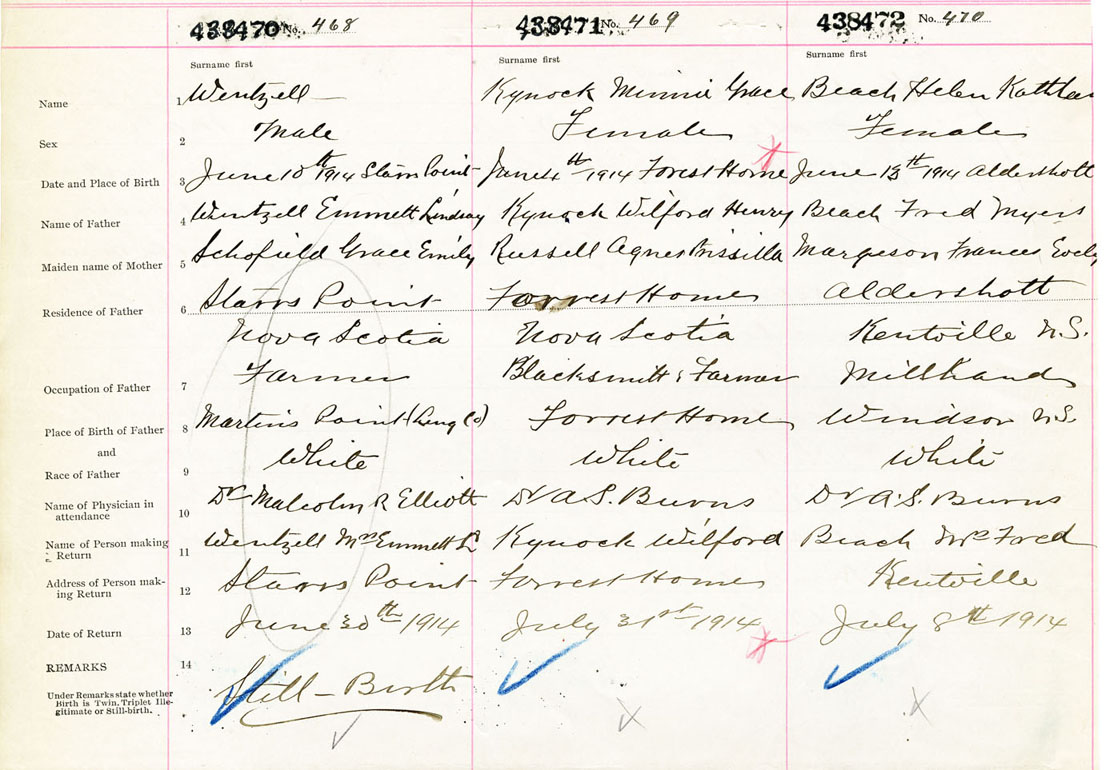 438470 No. 468 438471 No. 469 438472 No. 470
Surname first Surname first Surname first
Name 1 Wentzell — Kynock Minnie Grace Beach Helen Kathleen
Sex 2 Male Female Female
Date and Place of Birth 3 June 10th 1914 Starrs Point 4th 1914 Forest Home June 13th 1914 Aldershott
Name of Father 4 Wentzell Emmett Lindsay Kynock Wilford Henry Beach Fred Myers
Maiden name of Mother 5 Schofield Grace Emily Russell Agnes Prissilla Margeson Frances Evely
Residence of Father 6 Starrs Point Forrest Home Aldershott
Nova Scotia Nova Scotia Kentville N.S.
Occupation of Father 7 Farmer Blacksmith & Farmer Millhand
Place of Birth of Father 8 Martins Point (Lung Co) Forrest Home Windsor N.S.
and
Race of Father 9 White White White
Name of Physician in attendance 10 Dr Malcolm R Elliott Dr A.S. Burns Dr A.S. Burns
Name of Person making Return 11 Wentzell Mrs Emmett L Kynock Wilford Beach Mrs Fred
Address of Person making Return 12 Starrs Point Forrest Home Kentville
Date of Return 13 June 30th 1914 July 31st 1914 July 8th 1914
REMARKS 14 Still-Birth
Under Remarks state whether
Birth is Twin, Triplet Ille-
gitimate or Still-birth.